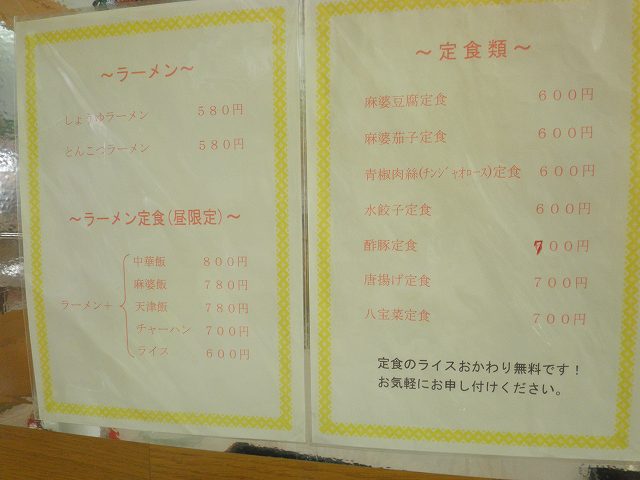 ～ラーメン～
しょうゆラーメン ５８０円
とんこつラーメン ５８０円
～ラーメン定食(昼限定)～
ラーメン＋
中華飯 ８００円
麻婆飯 ７８０円
天津飯 ７８０円
チャーハン ７００円
ライス ６００円
～定食類～
麻婆豆腐定食 ６００円
麻婆茄子定食 ６００円
青椒肉絲(ﾁﾝｼﾞｬｵﾛｰｽ)定食 ６００円
水餃子定食 ６００円
酢豚定食 ７００円
唐揚げ定食 ７００円
八宝菜定食 ７００円
定食のライスおかわり無料です！
お気軽にお申し付けください。